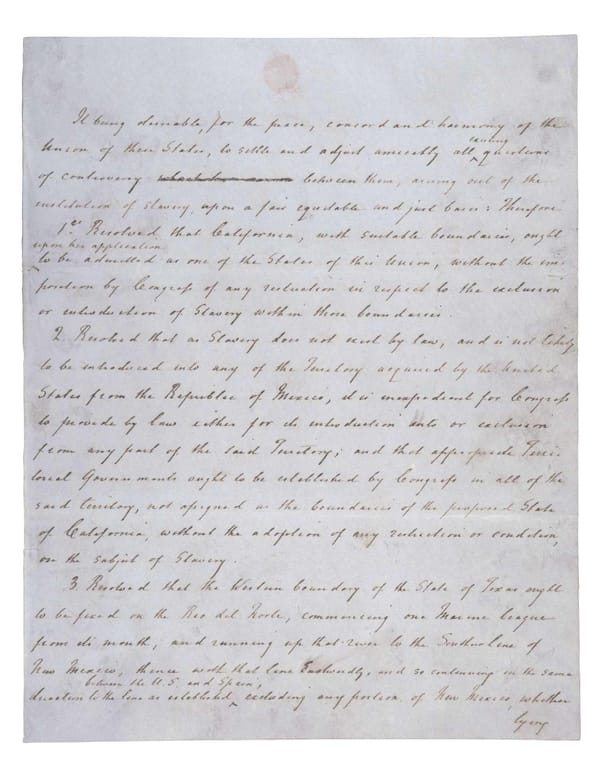 It being desirable, for the peace, concord and harmony of the
Union of these States, to settle and adjust amicably all existing questions
of controversy between them, arising out of the
institution of slavery, upon a fair equitable and just basis: Therefore
1st Resolved that California, with suitable boundaries, ought
upon her application
to be admitted as one of the States of this Union, without the im-
position by Congress of any restriction in respect to the exclusion
or introduction of Slavery within those boundaries.
2. Resolved that as Slavery does not exist by law, and is not likely
to be introduced into any of the Territory acquired by the United
States from the Republic of Mexico, it is inexpedient for Congress
to provide by law either for its introduction into or exclusion
from any part of the said Territory; and that appropriate Terri-
torial Governments ought to be established by Congress in all of the
said territory, not assigned as the boundaries of the proposed State
of California, without the adoption of any restriction or condition,
on the subject of Slavery.
3. Resolved that the Western boundary of the State of Texas ought
to be fixed on the Rio del Norte, commencing one Marine league
from its mouth, and running up that river to the Southern line of
New Mexico; thence with that line Eastwardly, and so continuing in the same
between the U.S. and Spain,
direction to the line as established, excluding any portion of New Mexico, whether
lying